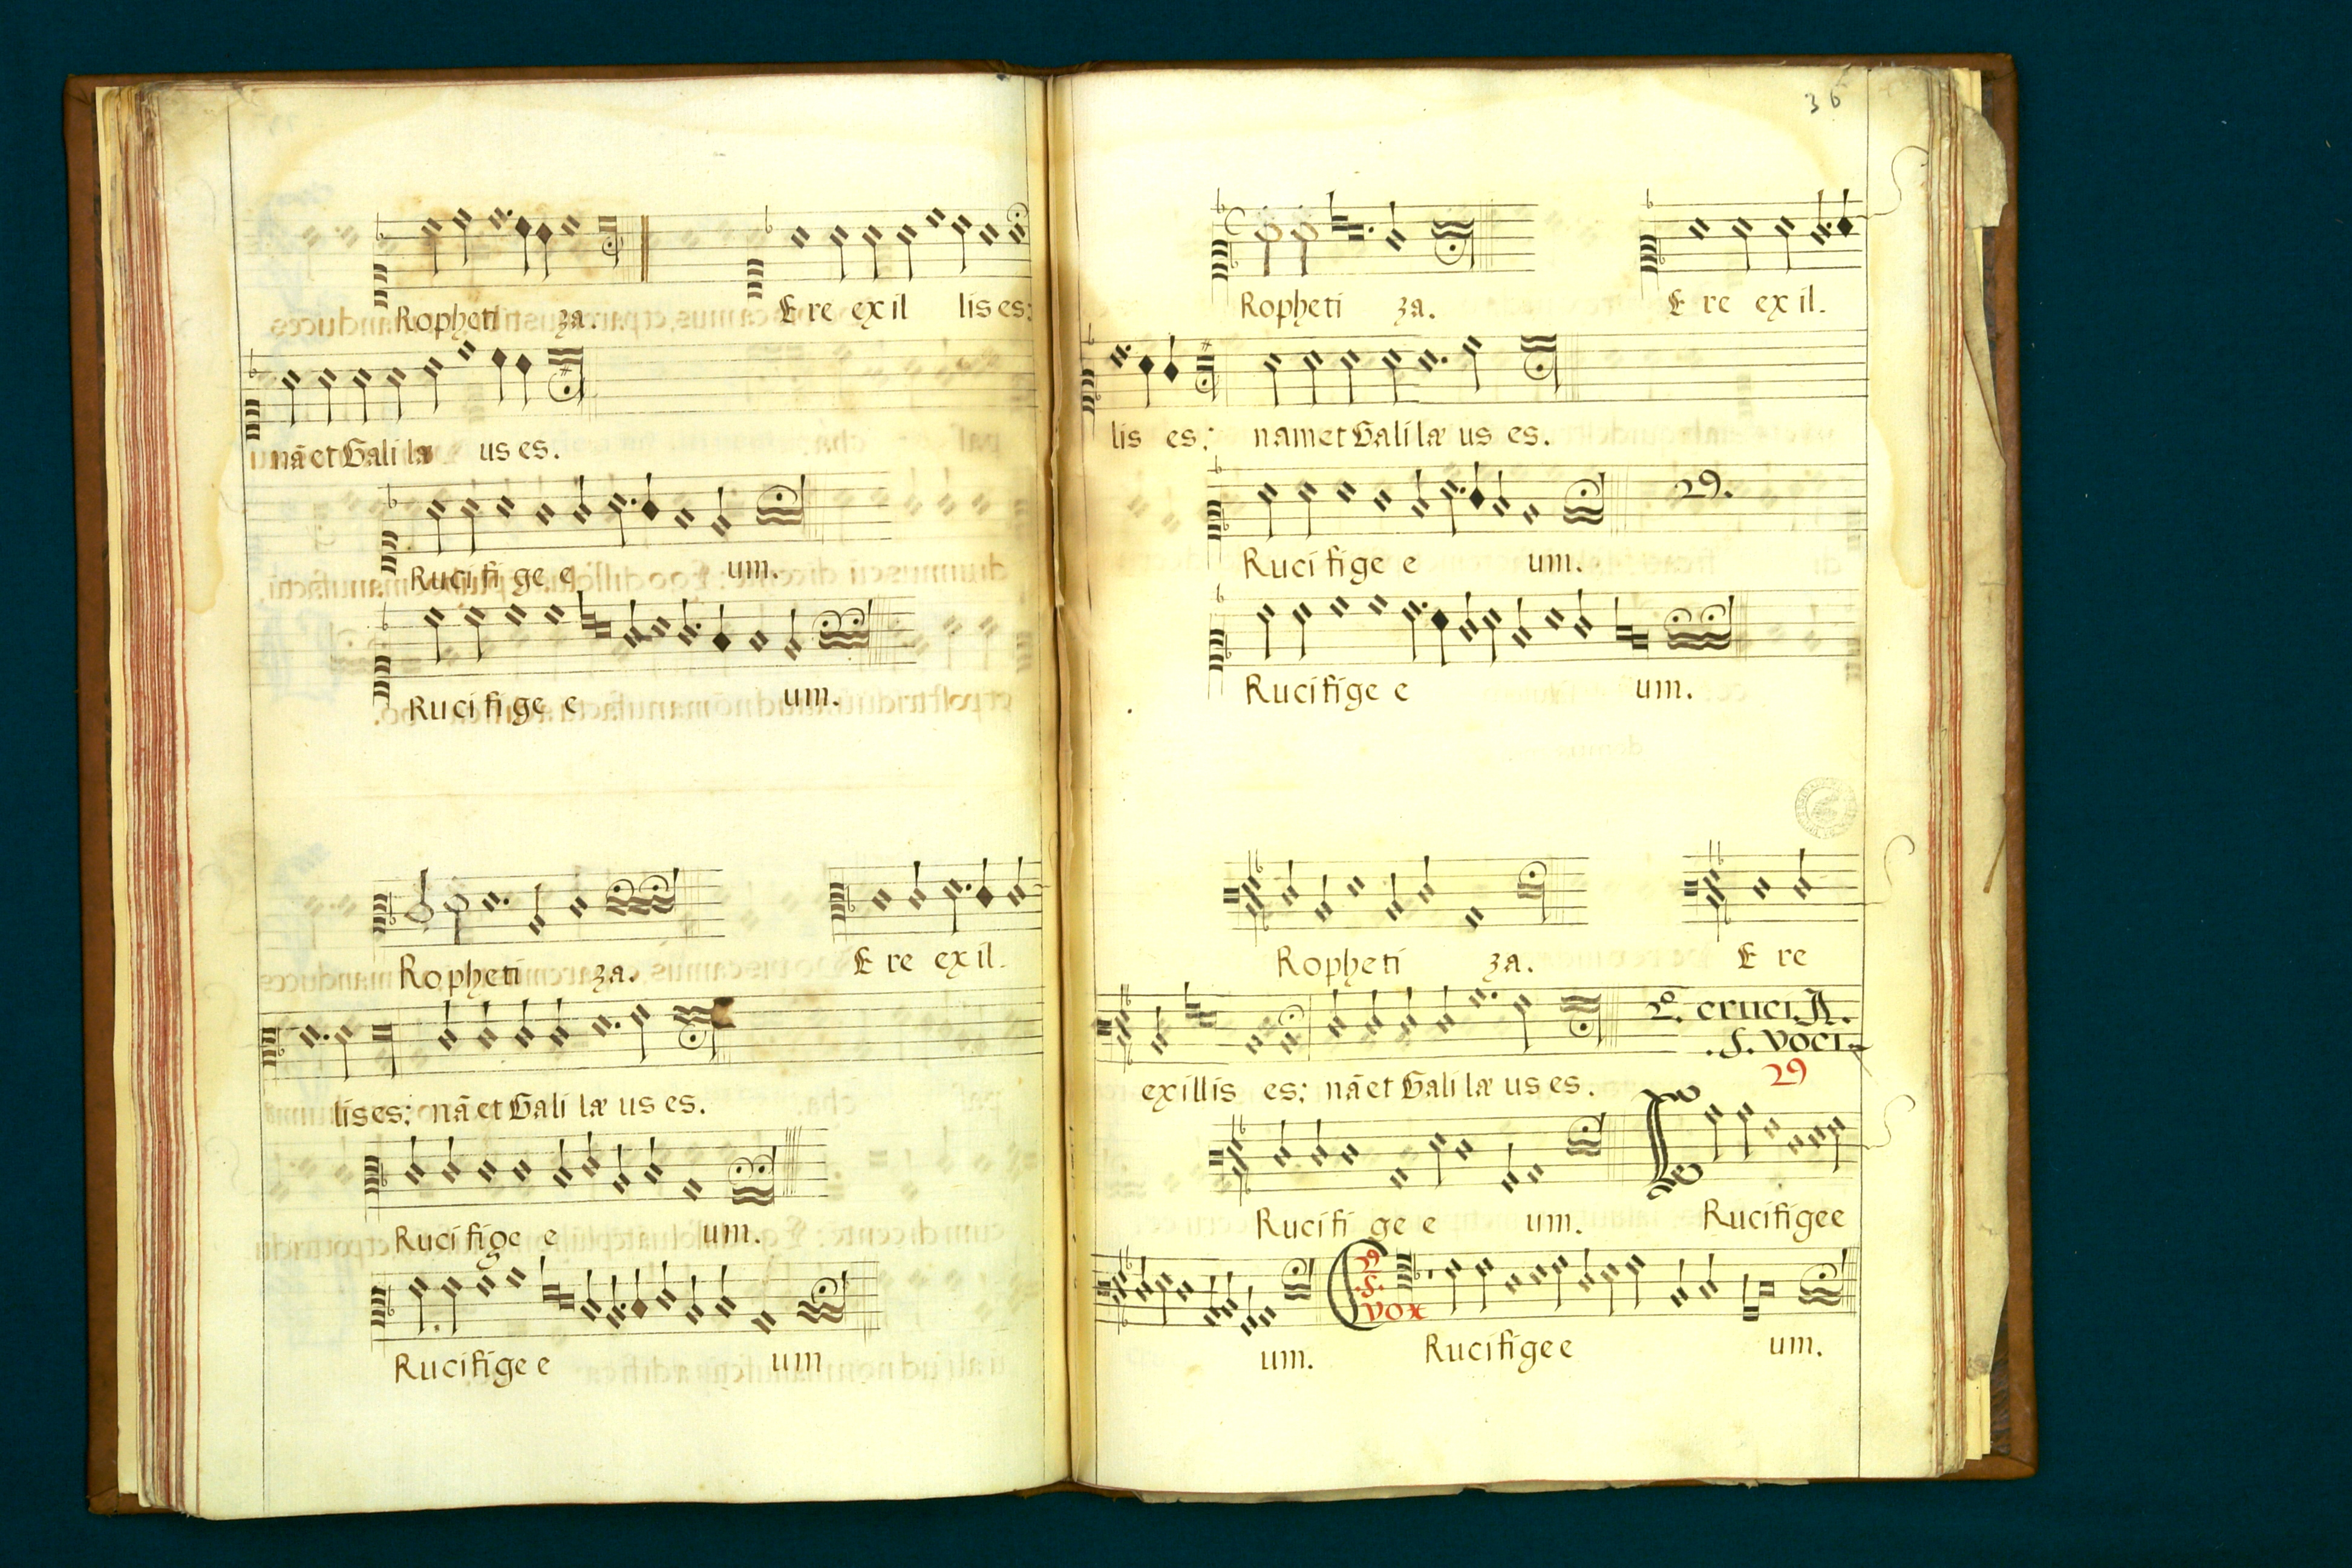 Ropheti za. E re exil lis es:
nā et Galilæ us es.
Ruci fi ge e um.
Ruci fi ge e um.
Ropheti za. E re exil.
lis es: nā et Gali læ us es.
Ruci fige e um.
Rucifige e um
36
Ropheti za. E re exil.
lis es: nam et Galilæ us es.
29.
Ruci fige e um.
Rucifige e um.
Ropheti za. E re
2º. cruci A.
.5. voci
29
exillis es: nā et Gali læ us es.
Rucifi ge e um. Rucifige e
29
.5.
vox
um. Rucifige e um.